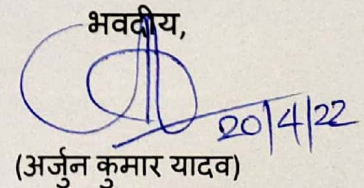 भवदीय,
20/4/22
(अर्जुन कुमार यादव)